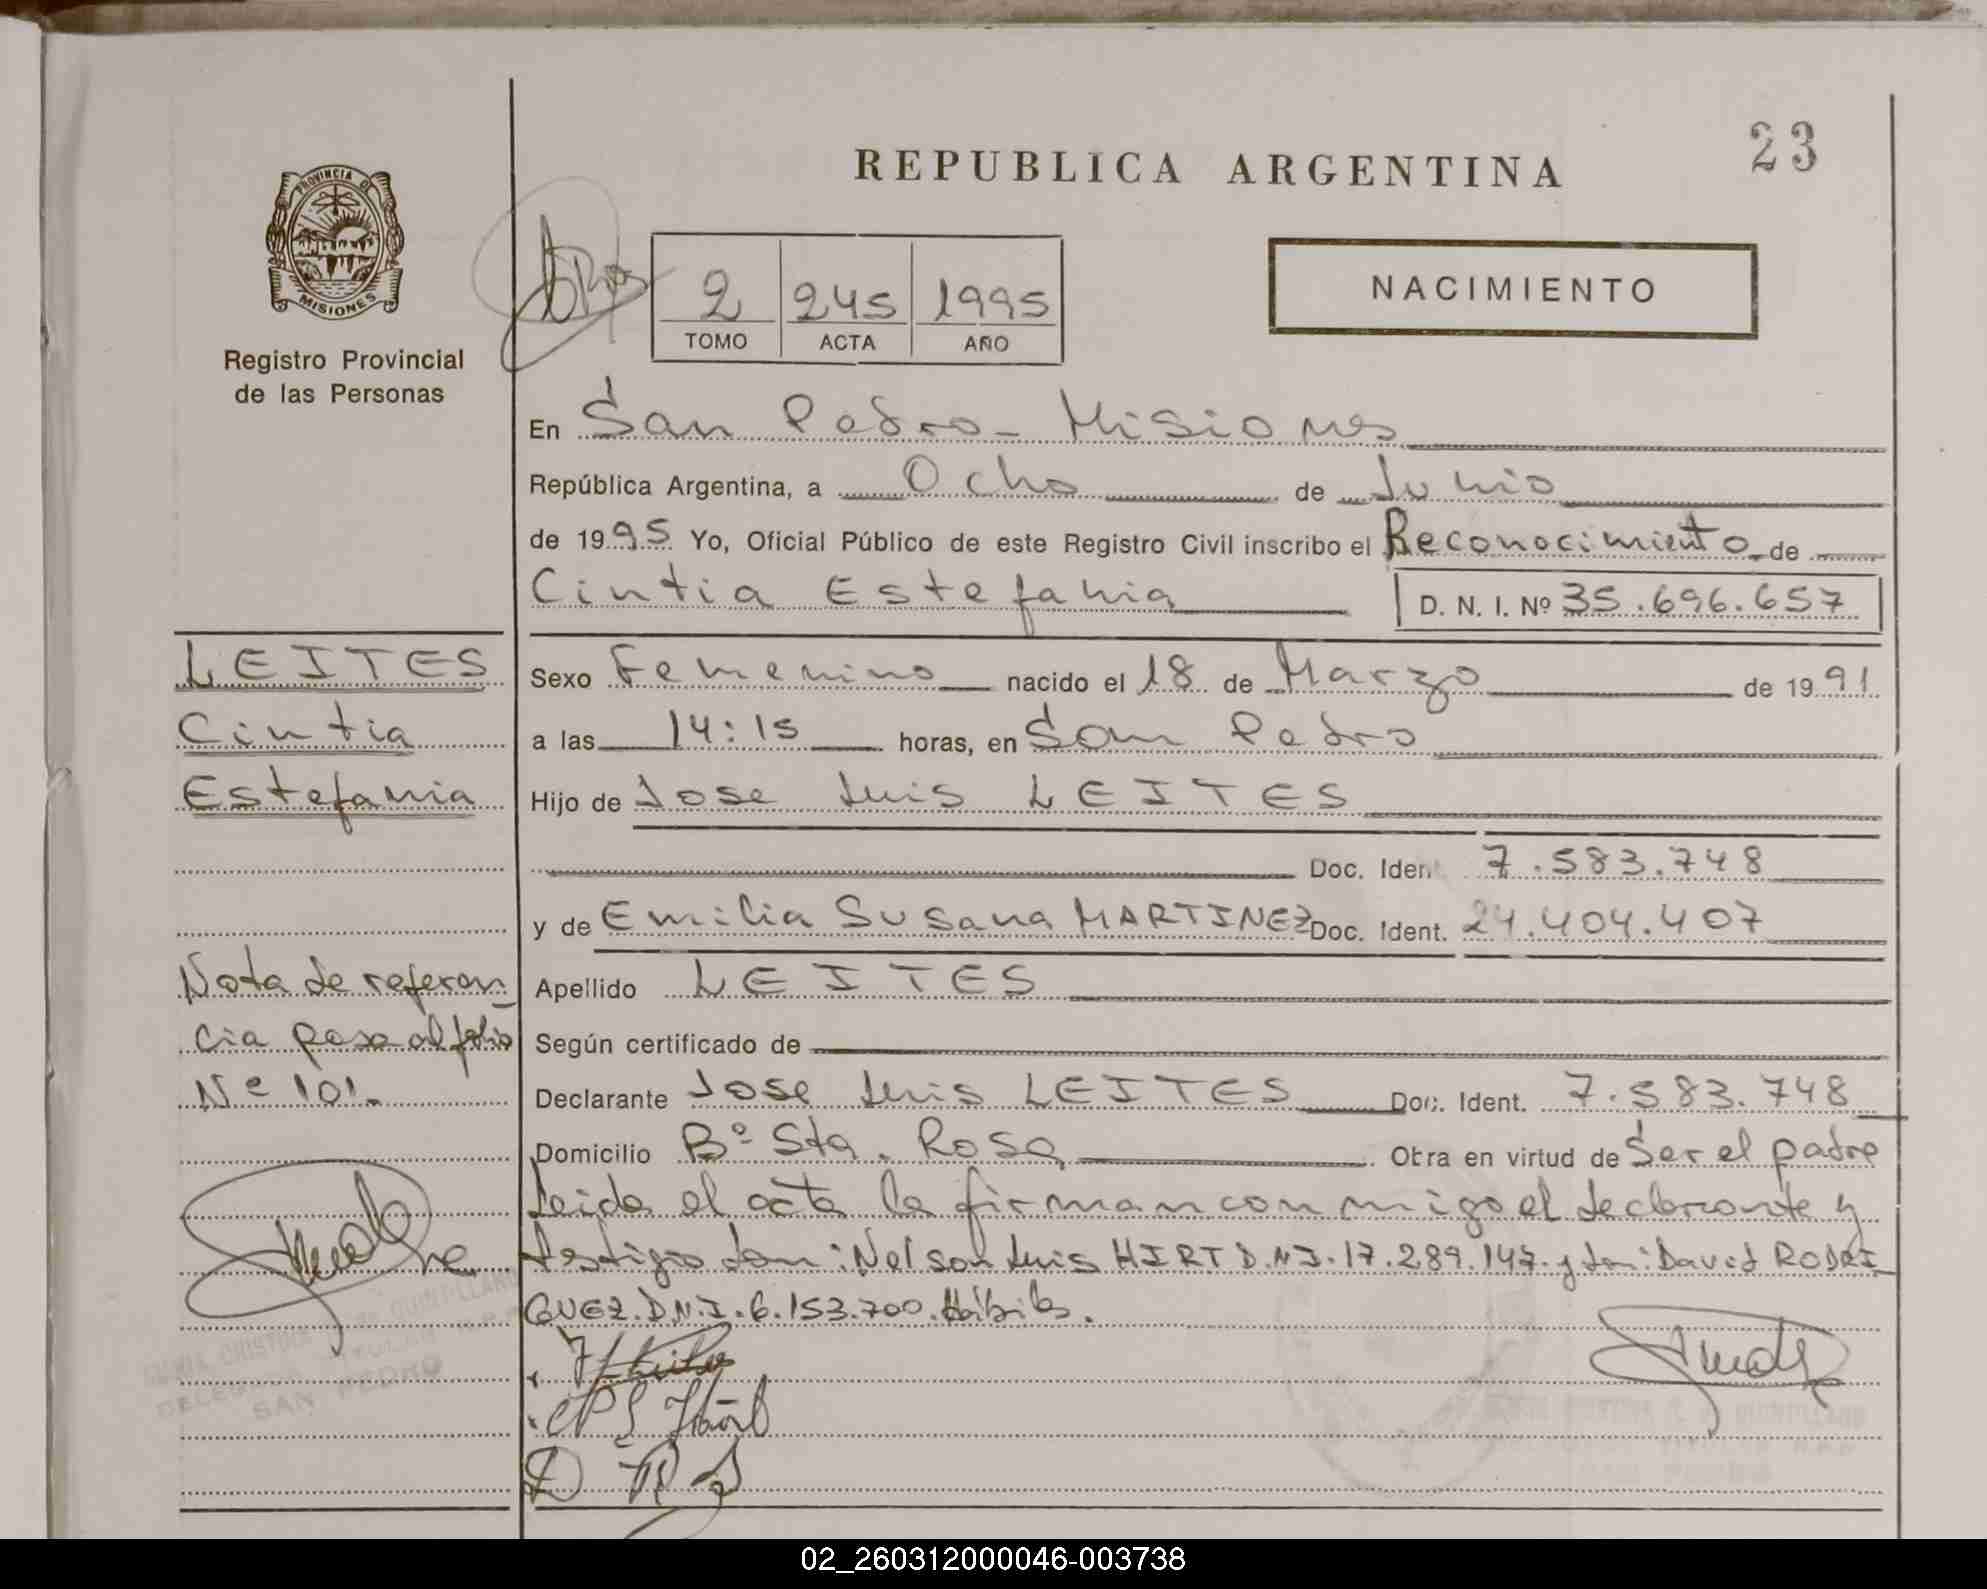 23
REPUBLICA ARGENTINA
PROVINCIA DE
MISIONES
Registro Provincial
de las Personas
2 245 1995
TOMO ACTA AÑO
NACIMIENTO
En San Pedro - Misiones
República Argentina, a Ocho de Junio
de 1995 Yo, Oficial Público de este Registro Civil inscribo el Reconocimiento de
Cintia Estefania D. N. I. Nº 35.696.657
LEITES
Cintia
Estefania
Sexo Femenino nacido el 18 de Marzo de 1991
a las 14:15 horas, en San Pedro
Hijo de Jose Luis LEITES
Doc. Ident 7.583.748
y de Emilia Susana MARTINEZ Doc. Ident. 24.404.407
Apellido LEITES
Según certificado de
Declarante Jose Luis LEITES Doc. Ident. 7.583.748
Domicilio Bº Sta. Rosa Obra en virtud de Ser el padre
Leida el acta la firman conmigo el declarante y
testigo don: Nelson Luis HIRT D.N.I. 17.289.147 y don: David RODRI
GUEZ. D.N.I. 6.153.700. Hábiles.
Nota de referen
cia pasa al folio
Nº 101.
CRISTINA
DE QUINTLLAN
SAN PEDRO
02_260312000046-003738